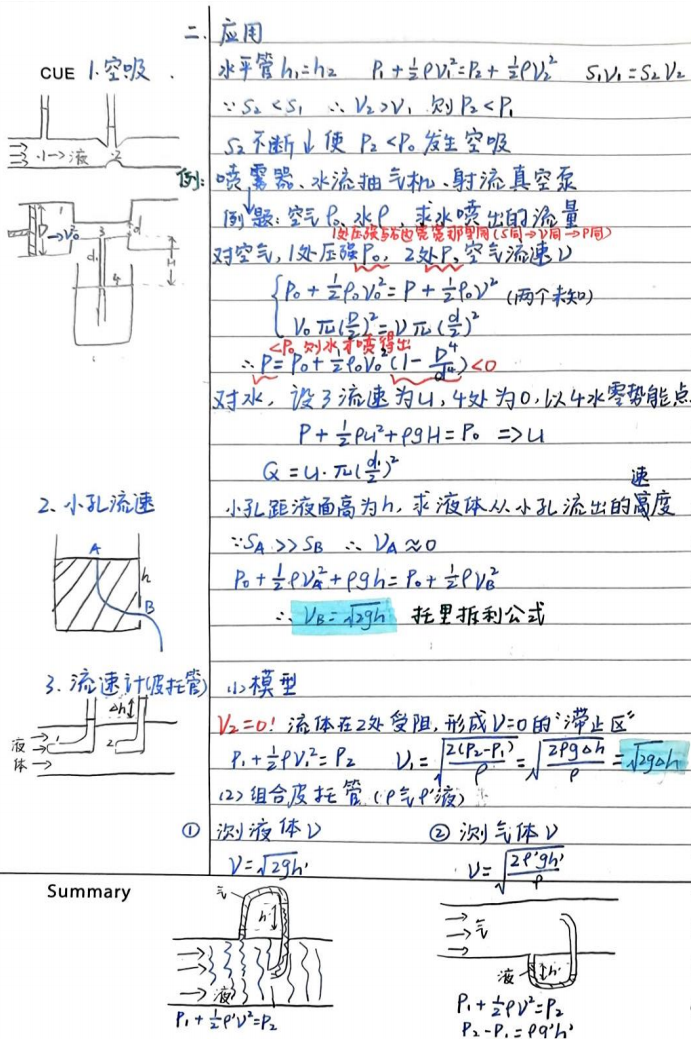 二、应用
CUE 1.空吸
水平管h₁=h₂ P₁+½ρV₁²=P₂+½ρV₂² S₁V₁=S₂V₂
∵S₂<S₁ ∴V₂>V₁ 则P₂<P₁
S₂不断↓使P₂<P₀发生空吸
1→液 2
例:喷雾器、水流抽气机、射流真空泵
例题:空气ρ₀、水ρ,求水喷出的流量
1处压强与右边宽宽那里同(S同→V同→P同)
对空气,1处压强P₀,2处P,空气流速V
D 1 V₀ 3 d d₁ H 4
{P₀+½ρ₀V₀²=P+½ρ₀V² (两个未知)
V₀π(D/2)²=Vπ(d/2)²
<P₀则水才喷得出
∴P=P₀+½ρ₀V₀²(1-D⁴/d⁴)<0
对水,设3流速为u,4处为0,以4水零势能点
P+½ρu²+ρgH=P₀ =>u
Q=u·π(d₁/2)²
速
2.小孔流速 小孔距液面高为h,求液体从小孔流出的高度
∵S_A>>S_B ∴V_A≈0
A h B
P₀+½ρV_A²+ρgh=P₀+½ρV_B²
∴V_B=√2gh 托里拆利公式
3.流速计(皮托管) (1)模型
Δh
V₂=0!流体在2处受阻,形成V=0的“滞止区”
液体 1 2
P₁+½ρV₁²=P₂ V₁=√(2(P₂-P₁)/ρ)=√(2ρgΔh/ρ)=√2gΔh
(2)组合皮托管(ρ气ρ'液)
① 测液体V ② 测气体V
V=√2gh' V=√(2ρ'gh'/ρ)
Summary
气 h' 液
P₁+½ρ'V²=P₂
气 液 h'
P₁+½ρV²=P₂
P₂-P₁=ρg'h'